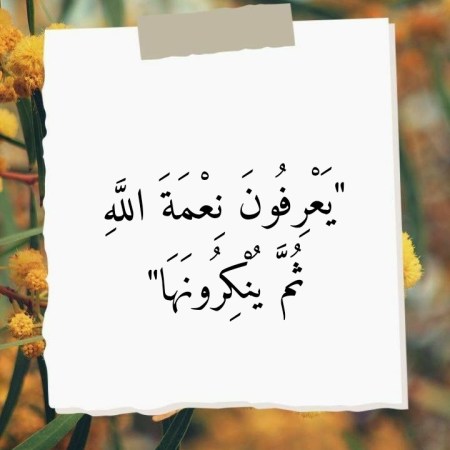 "يَعْرِفُونَ نِعْمَةَ اللَّهِ
ثُمَّ يُنْكِرُونَهَا"